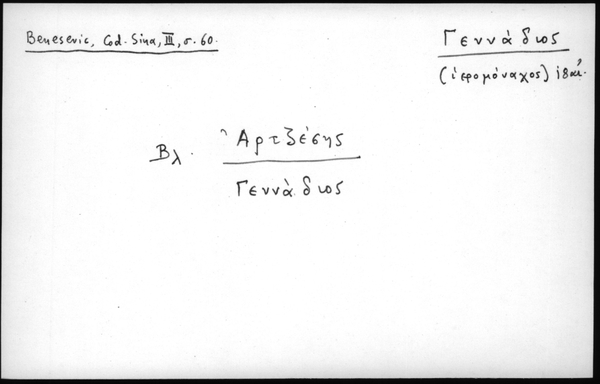 Benesevic, Cod. Sina, III, σ. 60.
Γεννάδιος
(ἱερομόναχος) ι8αι.
Βλ. Ἀρτζέσης
Γεννάδιος